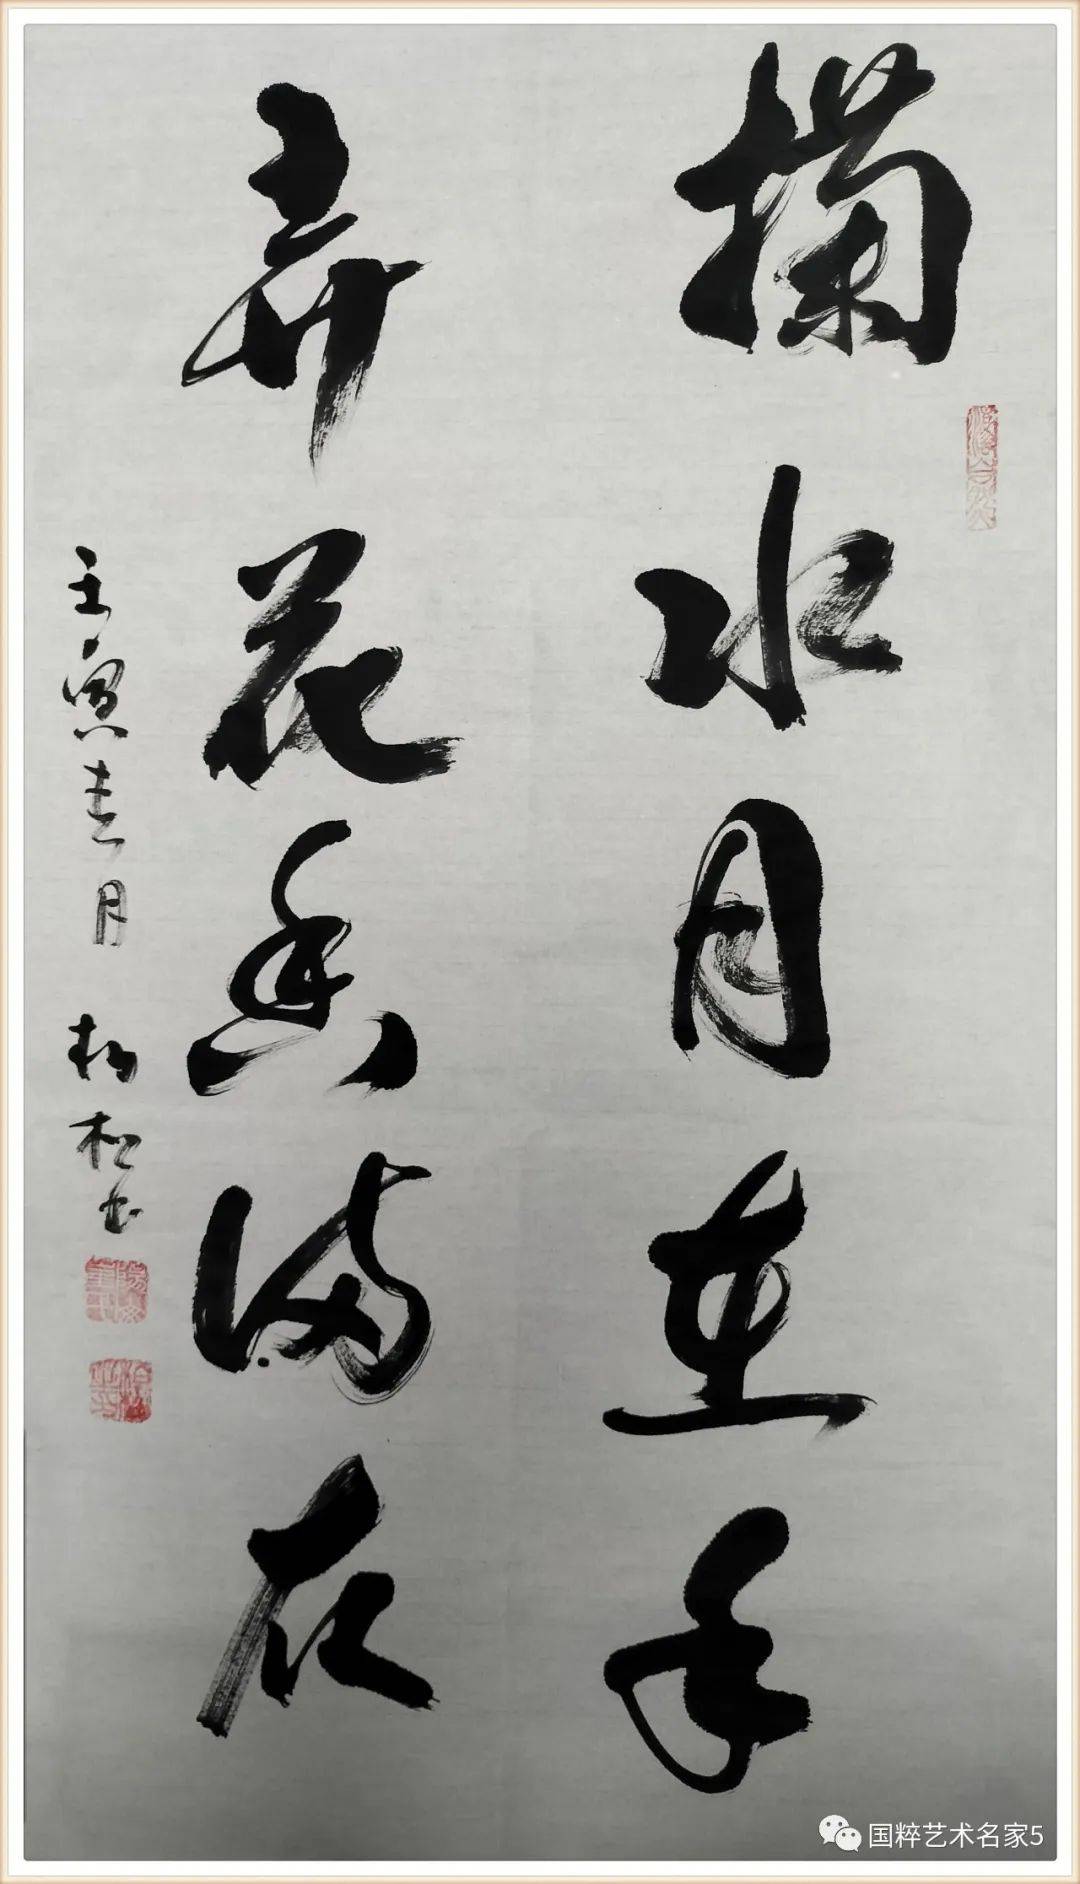 掬水月在手
弄花香满衣
壬寅春月 杨松书
国粹艺术名家5